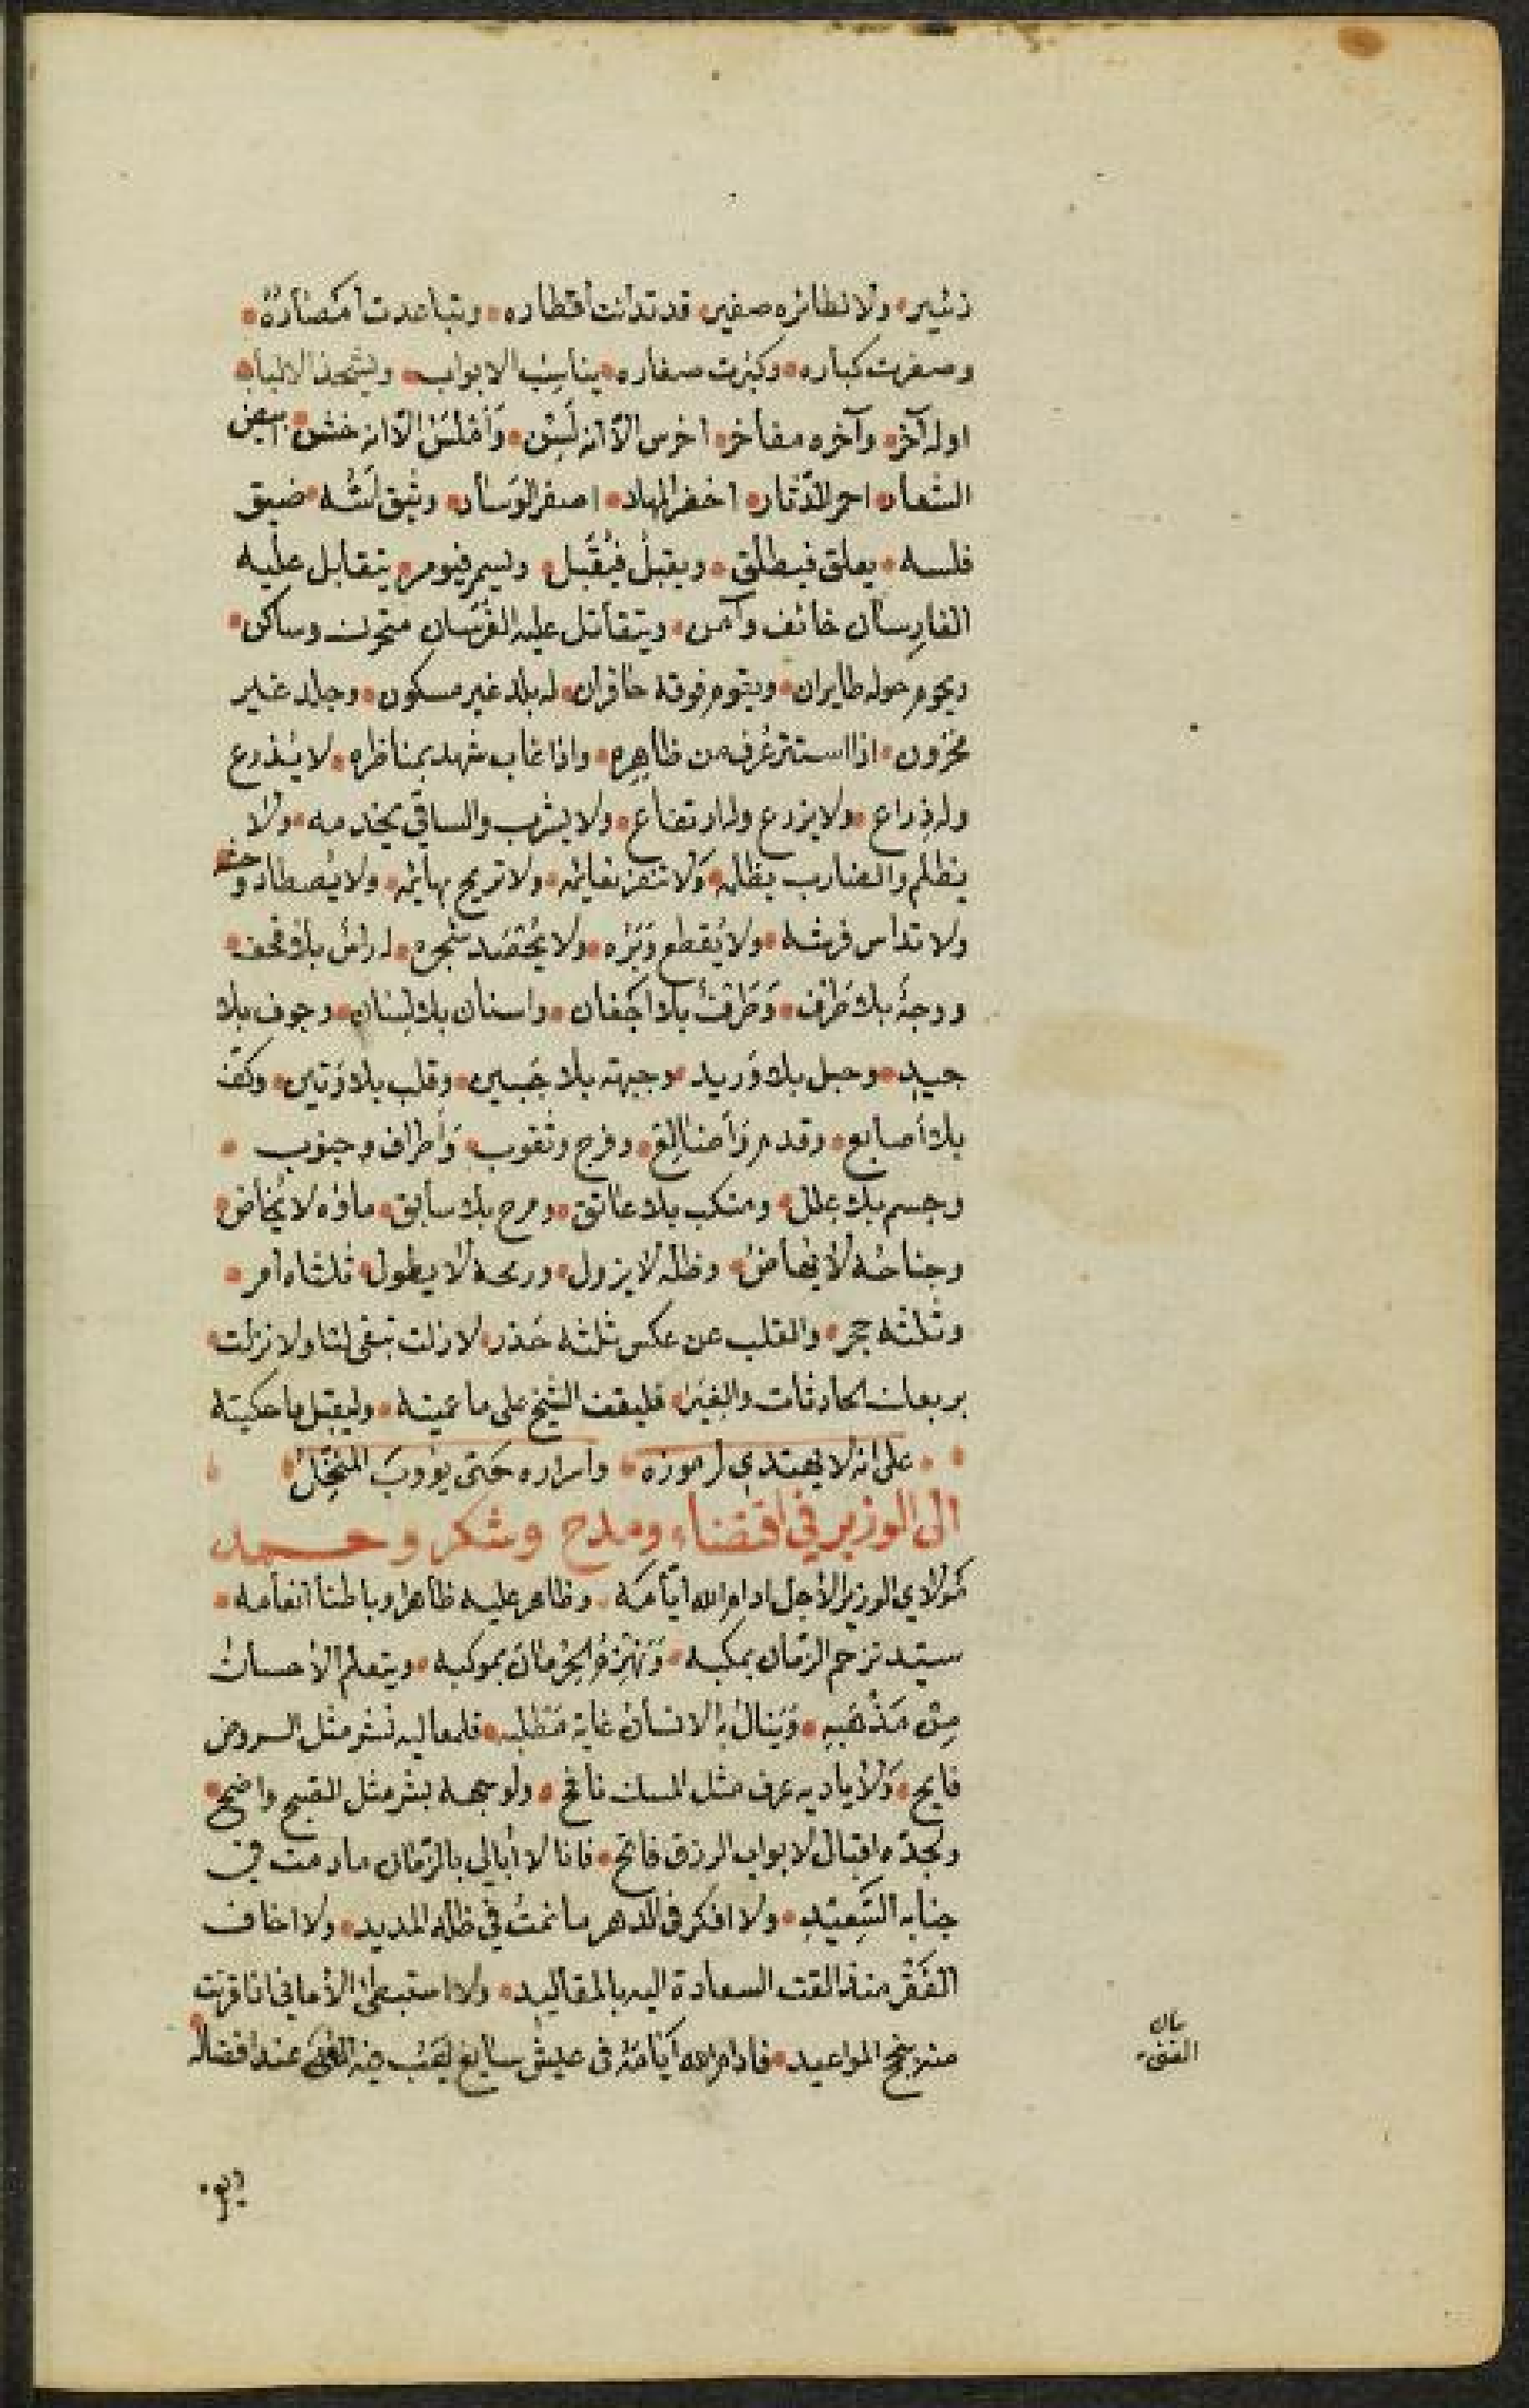 زئير ولا لطائره صفير قد تدانت اقطاره وتباعدت امصاره
وصغرت كباره وكبرت صغاره يناسب الابواب ويشحذ الالباب
اوله آخر وآخره مفاخر اخرس الا انه لسن واملس الا انه خشن ابيض
الشعار احمر الدثار اخضر المهاد اصفر الوساد وثيق ضيق
فلسه يعلق فيطلق ويقبل فيقبل يتقابل عليه
الفارسان خائف وآمن ويتقاتل عليه الفرسان متحرك وساكن
ويحوم حوله طايران ويقوم فوقه حافران له بلد غير مسكون وجلد غير
مخزون اذا استتر عرف من ظاهره واذا غاب شهد بمناظره لا يذرع
وله ذراع ولا يزرع وله ارتفاع ولا يشرب والساقي يخدمه ولا
يظلم والضارب يظلمه ولا تنفر نعائمه ولا تريح بهائمه ولا يصطاد وحشه
ولا تداس فرشه ولا يقطع وبره ولا يحصد شجره له راس بلا قحف
ووجه بلا طرف وطرف بلا اجفان واسنان بلا لسان وجوف بلا
جيد وحبل بلا وريد وجبهة بلا جبين وقلب بلا وتين وكف
بلا اصابع وقدم واضالع وفرج وثقوب واطراف وجيوب
وجسم بلا علل ومنكب بلا عاتق ومرح بلا سابق ماؤه لا يخاض
وجناحه لا يهاض وظله لا يزول وريحه لا يطول ثلثاه امر
وثلثه حجر والقلب عن عكس ثلثه حذر لا زلت تبقى لنا ولا نزلت
بربعك الحادثات والغير فليقف الشيخ على ما عميته وليقبل ما حكيته
على انه لا يهتدي لرموزه واسراره حتى يؤوب المنخل
الى الوزير في اقتضاء ومدح وشكر وحمد
مولاي الوزير الاجل ادام الله ايامه وظاهر عليه ظاهرا وباطنا انعامه
سيد تزحم الزمان بمنكبه وتهزم الحرمان بموكبه ويتعلم الاحسان
من مذهبه وينال به الانسان غاية مطلبه فلمعاليه نشر مثل الروض
فايح ولاياديه عرف مثل المسك نافح ولوجهه بشر مثل الصبح واضح
ولجده اقبال لابواب الرزق فاتح فانا لا ابالي بالزمان ما دمت في
جنابه السعيد ولا افكر في الدهر ما نمت في ظله المديد ولا اخاف
الفقر منذ القت السعادة اليه بالمقاليد ولا استبطئ الاماني اذا قربت
منه نجح المواعيد فادام الله ايامه في عيش سايغ فيه الغنى عند افضاله
الغنى